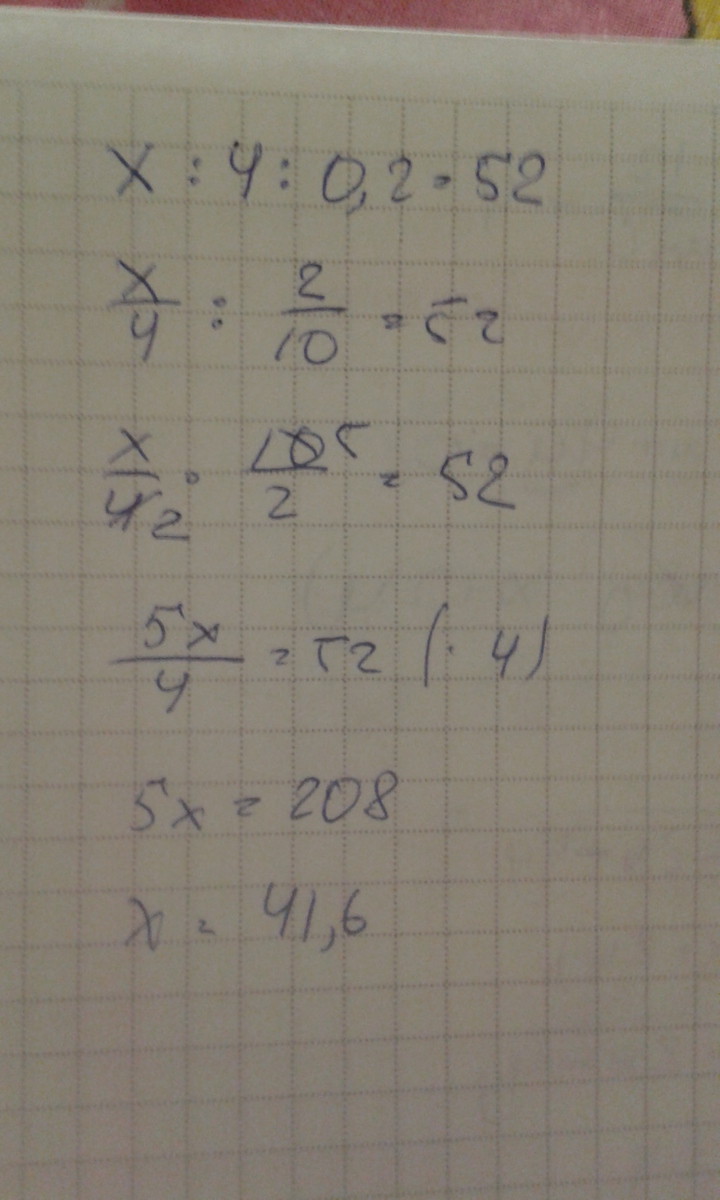 x : 4 : 0,2 = 52
x/4 : 2/10 = 52
x/4 2 · 10 5/2 = 52
5x/4 = 52 (· 4)
5x = 208
x = 41,6